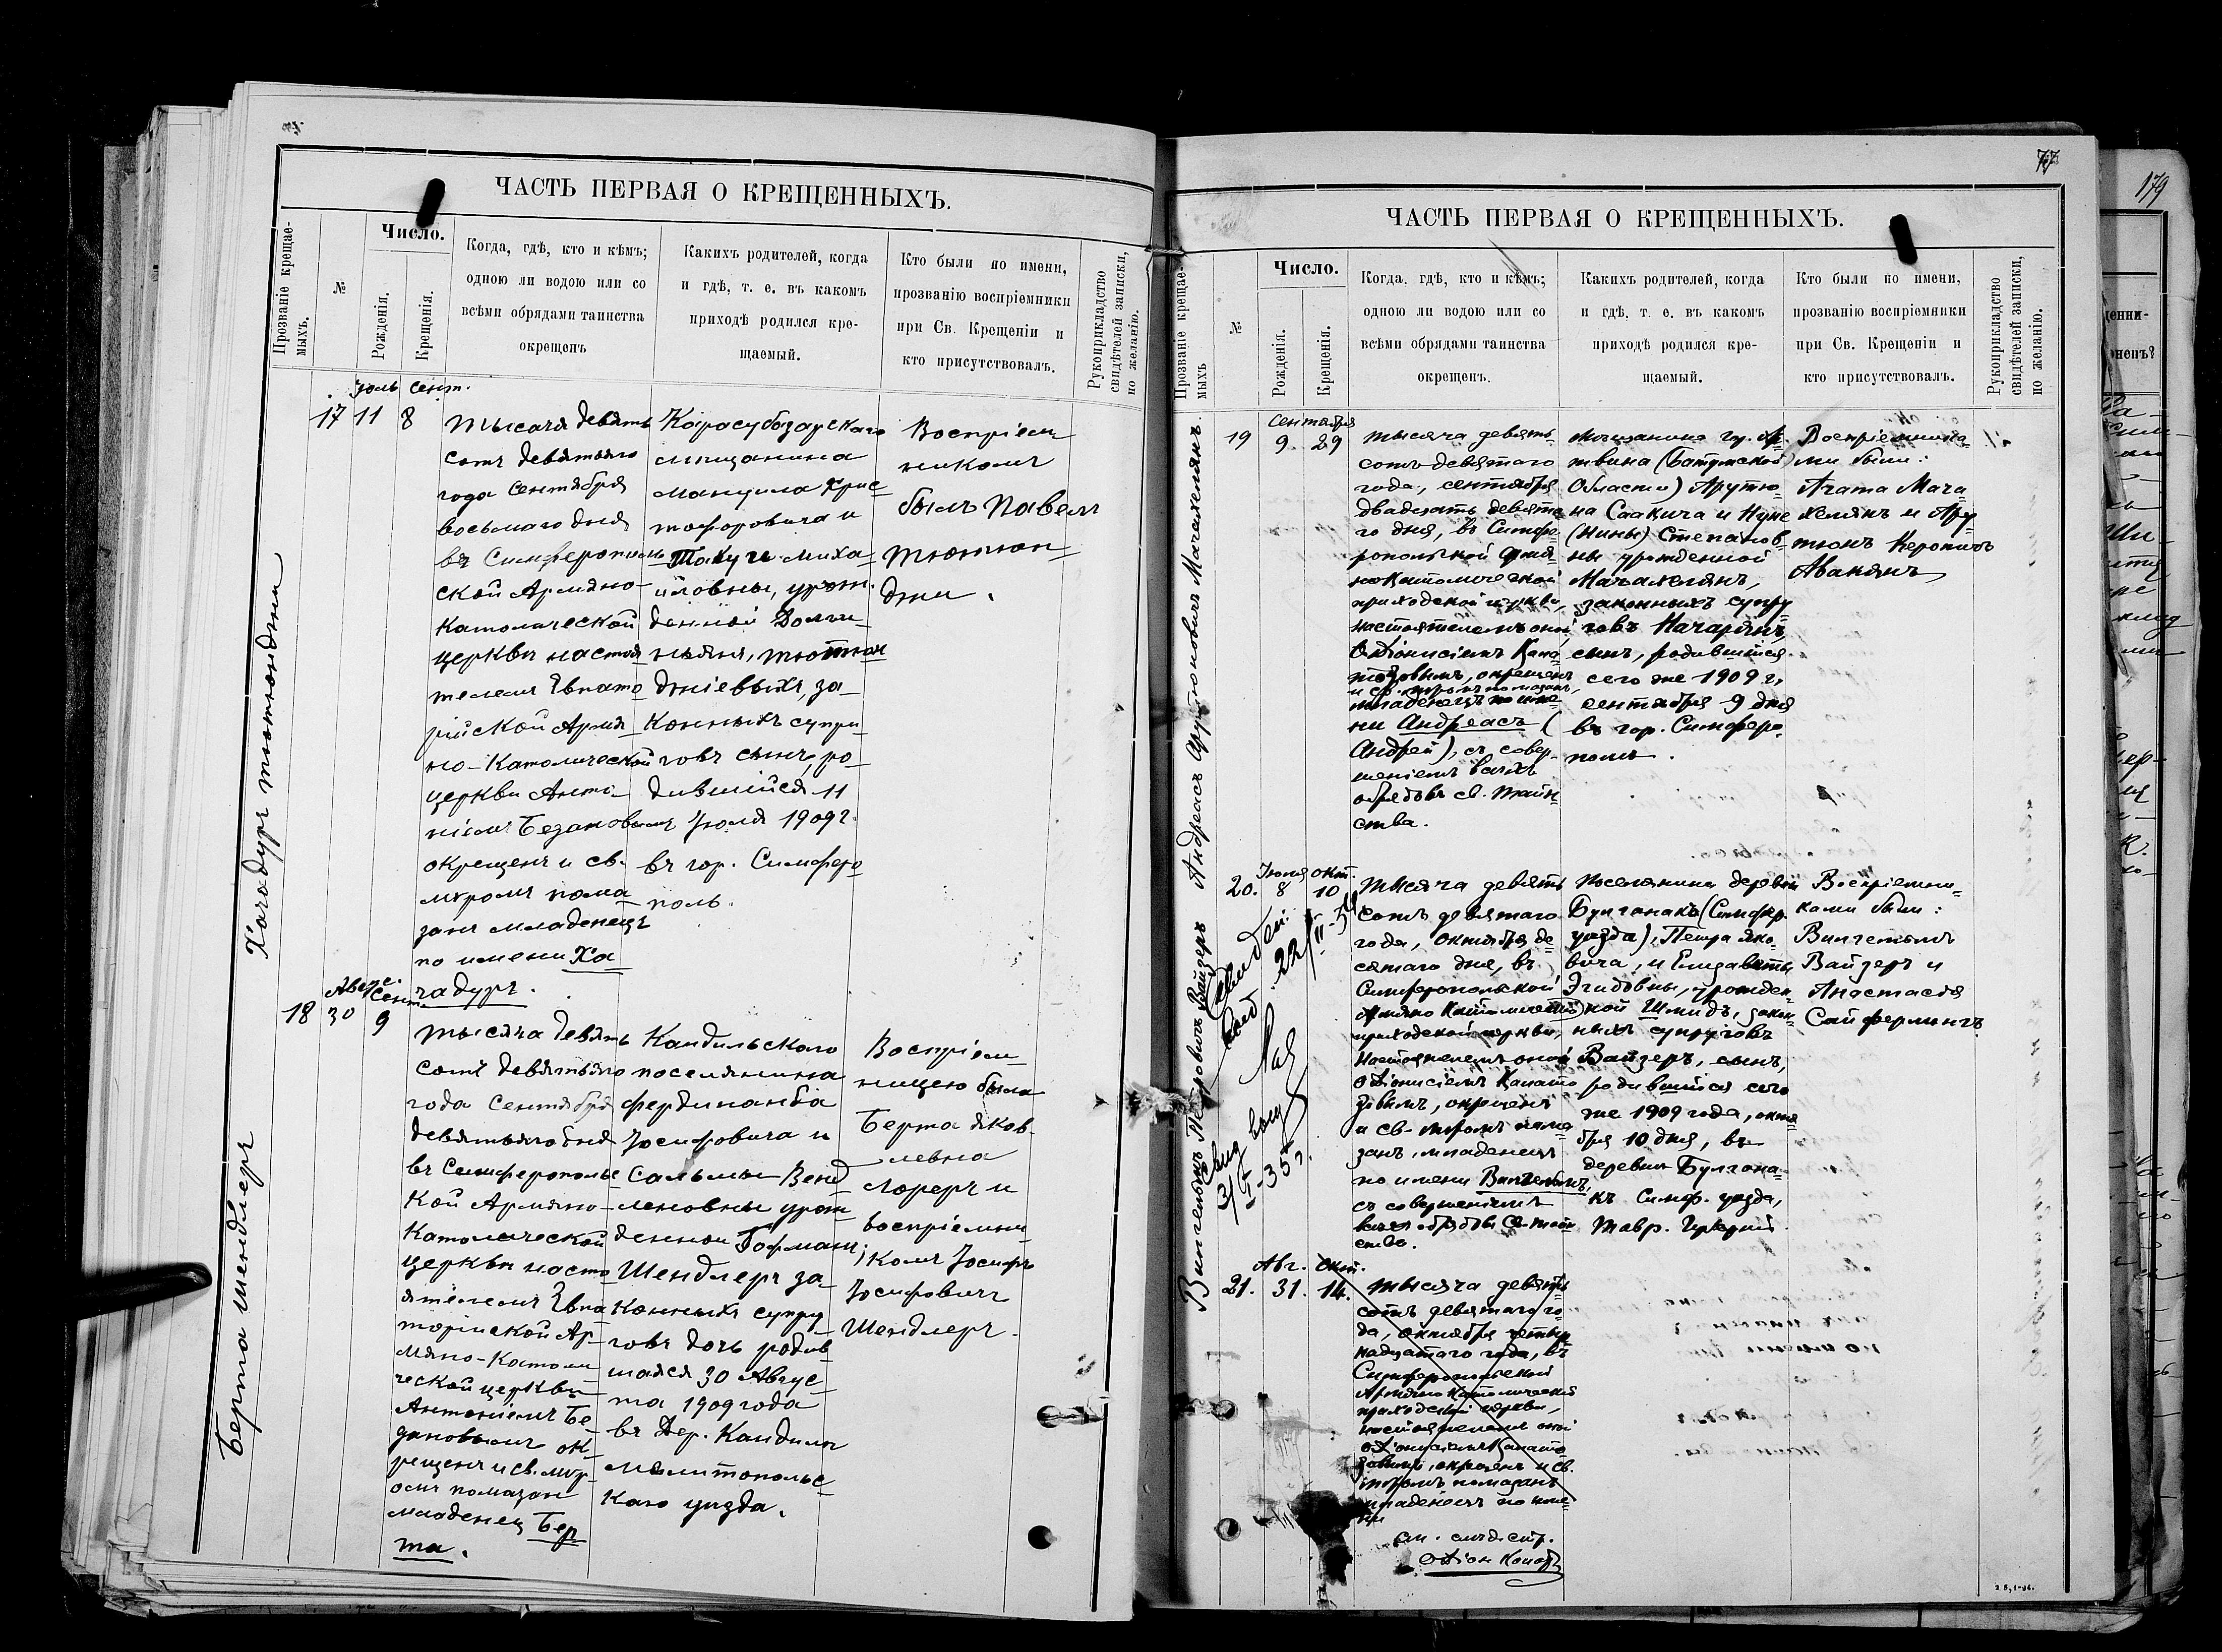 ЧАСТЬ ПЕРВАЯ О КРЕЩЕННЫХЪ.
Прозваніе крещае-
мыхъ.
№
Число.
Рожденія.
Крещенія.
Когда, гдѣ, кто и кѣмъ;
одною ли водою или со
всѣми обрядами таинства
окрещенъ
Какихъ родителей, когда
и гдѣ, т. е. въ какомъ
приходѣ родился кре-
щаемый.
Кто были по имени,
прозванію воспріемники
при Св. Крещеніи и
кто присутствовалъ.
Рукоприкладство
свидѣтелей записки,
по желанію.
Хачадуръ Тютюнджи
Іюль Сент.
17 11 8
Тысяча девять
сотъ девятаго
года Сентября
восьмаго дня
въ Симферополь
ской Армяно-
Католической
церкви настоя
телемъ Евпато
рійской Армя
но-Католической
церкви Анто-
ніемъ Безановымъ
окрещенъ и св.
мѵромъ пома
занъ младенецъ
по имени Ха
чадуръ.
Карасубазарскаго
мѣщанина
Мануила Хрис
тофоровича и
Миха
йловны, урож.
денной
законныхъ супру
говъ сынъ, ро
дившійся 11
Іюля 1909 г.
въ гор. Симферо
поль.
Воспріем
никомъ
былъ Павелъ
Тютюн
джи.
Берта Шендлеръ
Авгус. Сент.
18 30 9
Тысяча девять
сотъ девятаго
года Сентября
девятаго дня
въ Симферопольс
кой Армяно-
Католической
церкви насто
ятелемъ Евпа
торійской Ар
мяно-Католи
ческой церкви
Антоніемъ Бе
зановымъ ок
рещенъ и св. мѵр
омъ помазан
младенец Бер
та.
Кандильскаго
поселянина
Фердинанда
Іосифовича и
Сальмы Венд
леновны урож
денной Гофманъ
Шендлеръ за
конныхъ супру
говъ дочь родив
шаяся 30 Авгус
та 1909 года
въ дер. Кандиль
Мелитопольс
каго уѣзда.
Воспріем
ницею была
Берта Яков-
левна
Лореръ и
воспріемни
комъ Іосифъ
Іосифовичъ
Шендлеръ.
77
ЧАСТЬ ПЕРВАЯ О КРЕЩЕННЫХЪ.
Прозваніе крещае-
мыхъ
№
Число.
Рожденія.
Крещенія.
Когда, гдѣ, кто и кѣмъ;
одною ли водою или со
всѣми обрядами таинства
окрещенъ.
Какихъ родителей, когда
и гдѣ, т. е. въ какомъ
приходѣ родился кре-
щаемый.
Кто были по имени,
прозванію воспріемники
при Св. Крещеніи и
кто присутствовалъ.
Рукоприкладство
свидѣтелей записки,
по желанію.
Андреасъ Арутюновичъ Мачахелянъ.
Сентября
19 9 29
Тысяча девять
сотъ девятаго
года, сентября
двадцать девята
го дня, въ Симфе
ропольской Армя
но Католической
приходской церкви,
настоятелемъ оной
о. Діонисіемъ Капа
товымъ, окрещенъ
и св. мѵромъ помазанъ,
младенецъ по име
ни Андреасъ (
Андрей), съ совер-
шеніемъ всѣхъ
обрядовъ св. таин
ства.
Мѣщанина гор. Ар
твина (Батумской
Области) Арутю
на Саакича и Нуне
(Нины) Степанов
ны урожденной
Мачахелянъ,
законныхъ супру
говъ
сынъ, родившійся
сего же 1909 г.
сентября 9 дня
въ гор. Симферо
полѣ.
Воспріемника
ми были:
Агата Мача
хелянъ и Ару
тюнъ Керопичъ
Авакянъ
Вильгельмъ Петровичъ Вайзеръ
Іюня Окт.
20. 8 10
Тысяча девять
сотъ девятаго
года, октября де
сятаго дня, въ
Симферопольской
Армяно Католической
приходской церкви,
настоятелемъ оной
о. Діонисіемъ Капато
вымъ, окрещенъ
и св. мѵромъ пома
занъ, младенецъ
по имени Вильгельмъ,
съ совершеніемъ
всѣхъ обрядовъ св. таин
ства.
Поселянина деревни
Булганакъ (Симфер.
уѣзда), Петра Яко-
вича, и Елизаветы
Эгидовны, урожден
ной Шмидъ, закон
ныхъ супруговъ
Вайзеръ, сынъ,
родившійся сего
же 1909 года, октя
бря 10 дня, въ
деревнѣ Булгана
къ Симф. уѣзда,
Тавр. Губерніи.
Воспріемни-
ками были:
Вильгельмъ
Вайзеръ и
Анастасія
Сайферлингъ
Авг. Окт.
21. 31. 14.
Тысяча девять
сотъ девятаго го
да, октября четыр
надцатаго года, въ
Симферопольской
Армяно Католической
приходской церкви,
настоятелемъ оной
о. Діонисіемъ Капато
вымъ, окрещенъ и св.
мѵромъ помазанъ
младенецъ по име
ни
см. слѣд. стр.
179